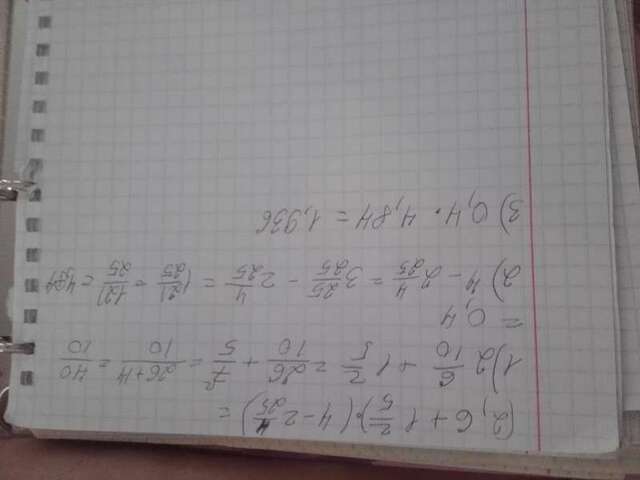 (2,6+1 2/5)·(4-2 4/25)=
1) 2 6/10 + 1 2/5 = 26/10 + 7/5 = 26+14/10 = 40/10
= 0,4
2) 4 - 2 4/25 = 3 25/25 - 2 4/25 = 1 21/25 = 121/25 = 4,84
3) 0,4 · 4,84 = 1,936